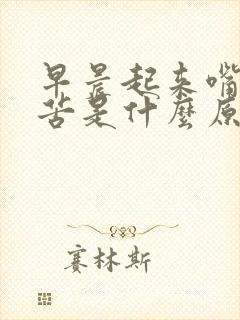 早晨起来嘴
苦是什麼原
赛林斯